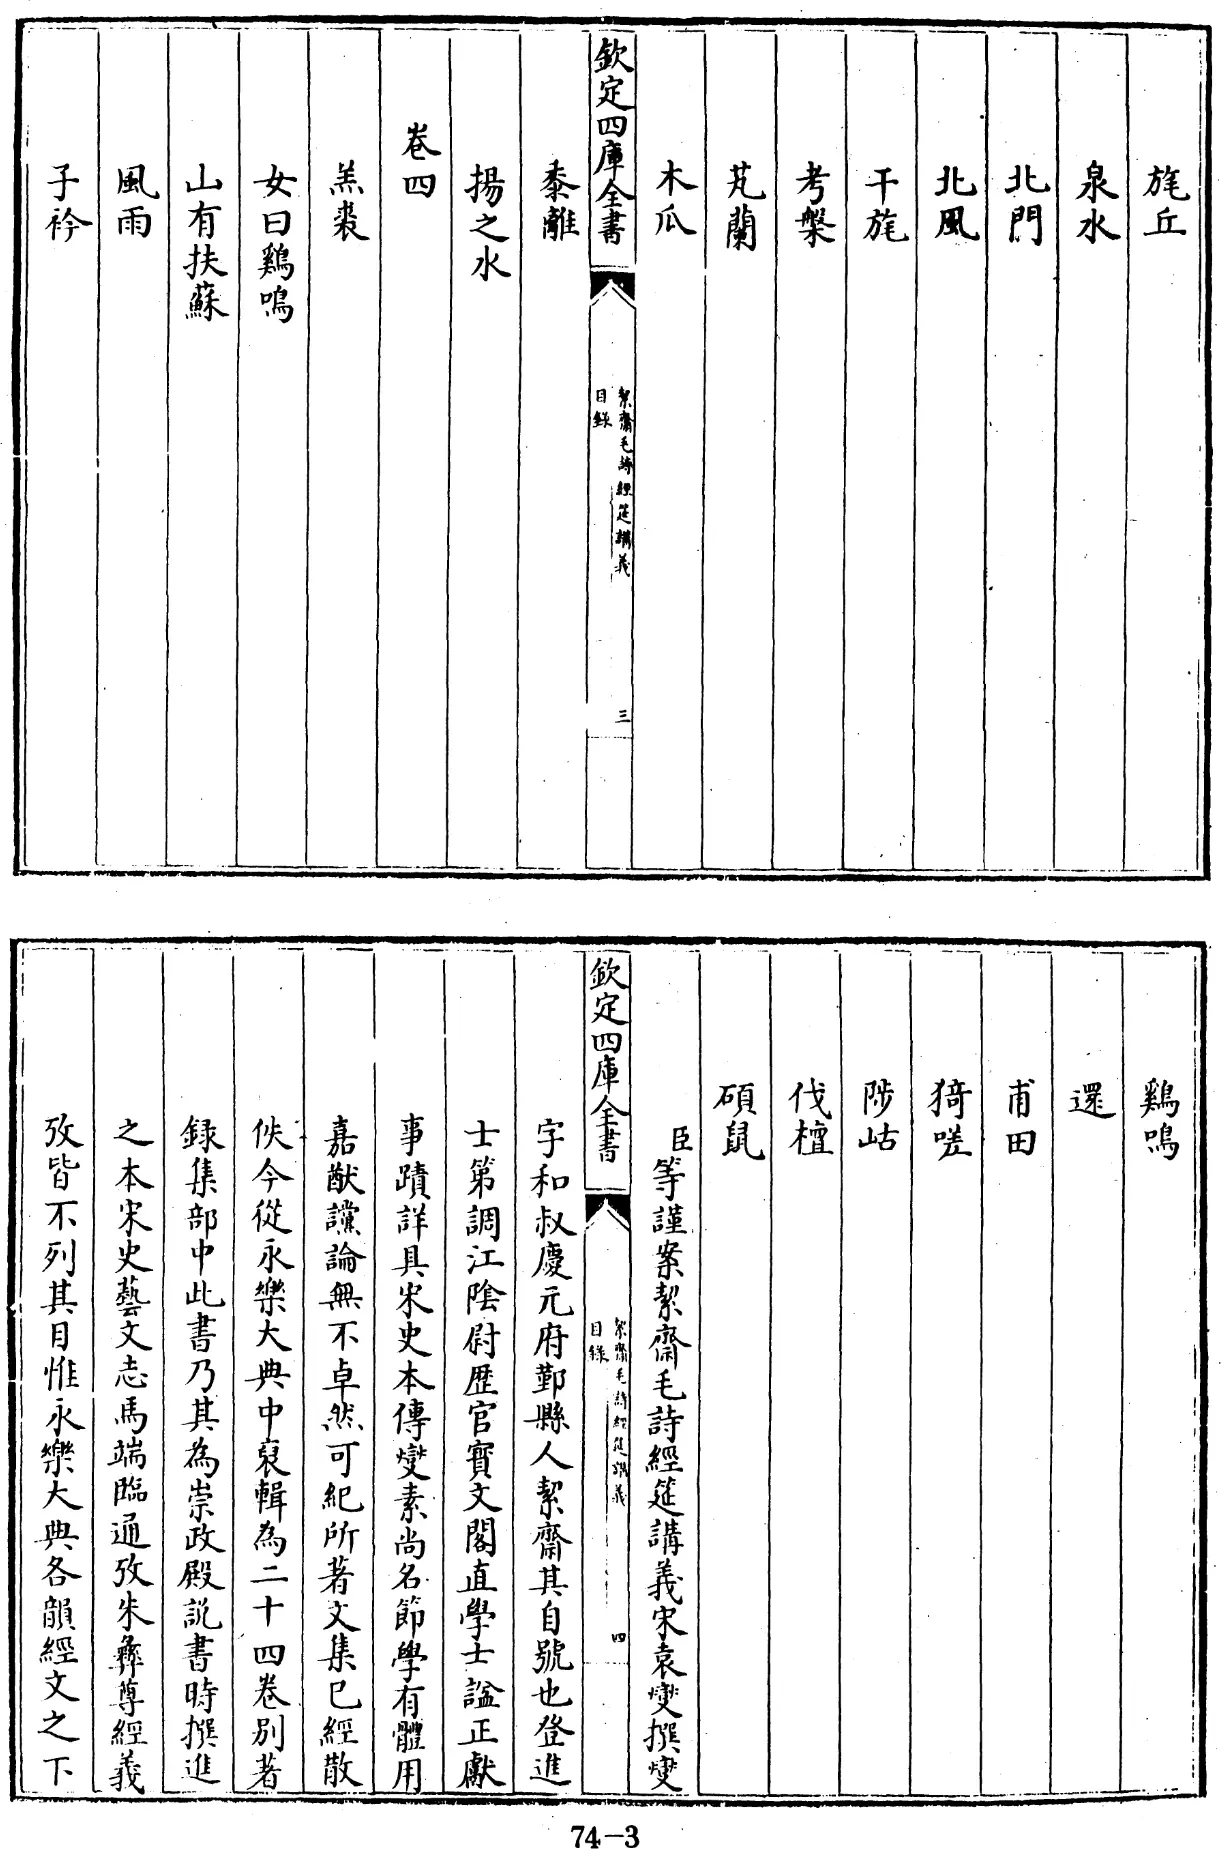 旄丘
泉水
北門
北風
干旄
考槃
芄蘭
木瓜
欽定四庫全書
絜齋毛詩經筵講義
目錄
三
黍離
揚之水
卷四
羔裘
女曰鷄鳴
山有扶蘇
風雨
子衿
鷄鳴
還
甫田
猗嗟
陟岵
伐檀
碩鼠
臣等謹案絜齋毛詩經筵講義宋袁燮撰燮
欽定四庫全書
絜齋毛詩經筵講義
目錄
四
字和叔慶元府鄞縣人絜齋其自號也登進
士第調江陰尉歷官寶文閣直學士諡正獻
事蹟詳具宋史本傳燮素尚名節學有體用
嘉猷讜論無不卓然可紀所著文集已經散
佚今從永樂大典中裒輯為二十四卷別著
録集部中此書乃其為崇政殿說書時撰進
之本宋史藝文志馬端臨通攷朱彝尊經義
攷皆不列其目惟永樂大典各韻經文之下
74-3